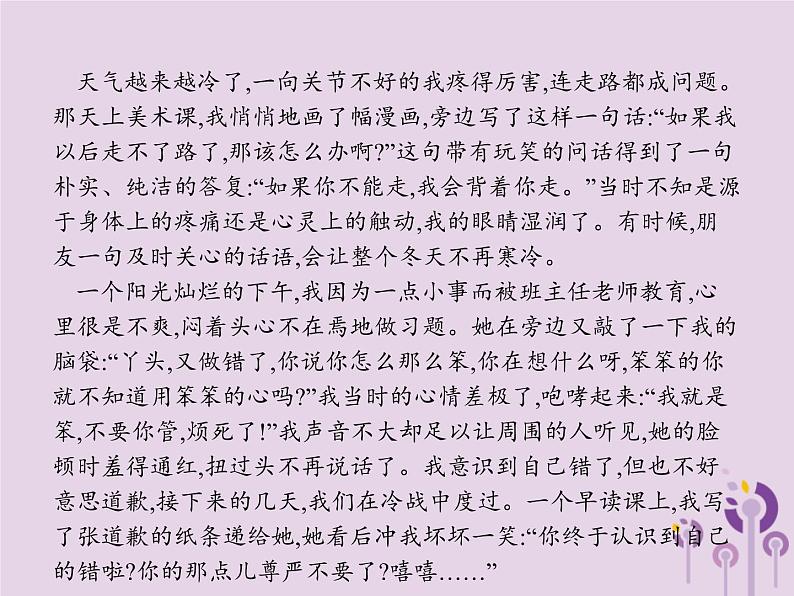 天气越来越冷了,一向关节不好的我疼得厉害,连走路都成问题。
那天上美术课,我悄悄地画了幅漫画,旁边写了这样一句话:“如果我
以后走不了路了,那该怎么办啊?”这句带有玩笑的问话得到了一句
朴实、纯洁的答复:“如果你不能走,我会背着你走。”当时不知是源
于身体上的疼痛还是心灵上的触动,我的眼睛湿润了。有时候,朋
友一句及时关心的话语,会让整个冬天不再寒冷。
一个阳光灿烂的下午,我因为一点小事而被班主任老师教育,心
里很是不爽,闷着头心不在焉地做习题。她在旁边又敲了一下我的
脑袋:“丫头,又做错了,你说你怎么那么笨,你在想什么呀,笨笨的你
就不知道用笨笨的心吗?”我当时的心情差极了,咆哮起来:“我就是
笨,不要你管,烦死了!”我声音不大却足以让周围的人听见,她的脸
顿时羞得通红,扭过头不再说话了。我意识到自己错了,但也不好
意思道歉,接下来的几天,我们在冷战中度过。一个早读课上,我写
了张道歉的纸条递给她,她看后冲我坏坏一笑:“你终于认识到自己
的错啦?你的那点儿尊严不要了?嘻嘻……”